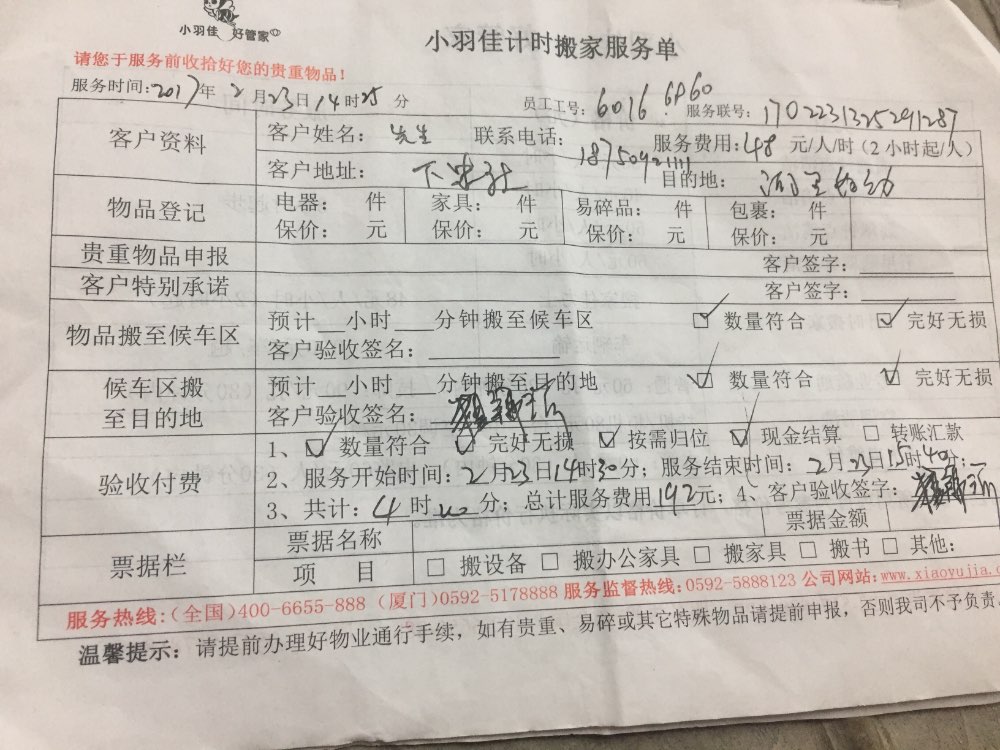 小羽佳 好管家
小羽佳计时搬家服务单
请您于服务前收拾好您的贵重物品！
服务时间：2017年2月23日14时25分 员工工号：6016 6860 服务联号：1702231325291287
客户资料 客户姓名：先生 联系电话：18750921111 服务费用：48元/人/时（2小时起/人）
客户地址：下忠社 目的地：
物品登记 电器： 件 家具： 件 易碎品： 件 包裹： 件
保价： 元 保价： 元 保价： 元 保价： 元
贵重物品申报 客户签字：
客户特别承诺 客户签字：
物品搬至候车区 预计___小时___分钟搬至候车区 ☑ 数量符合 ☑ 完好无损
客户验收签名：
候车区搬至目的地 预计___小时___分钟搬至目的地 ☑ 数量符合 ☑ 完好无损
客户验收签名：
验收付费 1、☑ 数量符合 ☑ 完好无损 ☑ 按需归位 ☑ 现金结算 □ 转账汇款
2、服务开始时间：2月23日14时30分；服务结束时间：2月23日15时40分；
3、共计：4时00分；总计服务费用192元；4、客户验收签字：
票据栏 票据名称 票据金额
项 目 □ 搬设备 □ 搬办公家具 □ 搬家具 □ 搬书 □ 其他：
服务热线：（全国）400-6655-888（厦门）0592-5178888 服务监督热线：0592-5888123 公司网站：www.xiaoyujia.c
温馨提示：请提前办理好物业通行手续，如有贵重、易碎或其它特殊物品请提前申报，否则我司不予负责